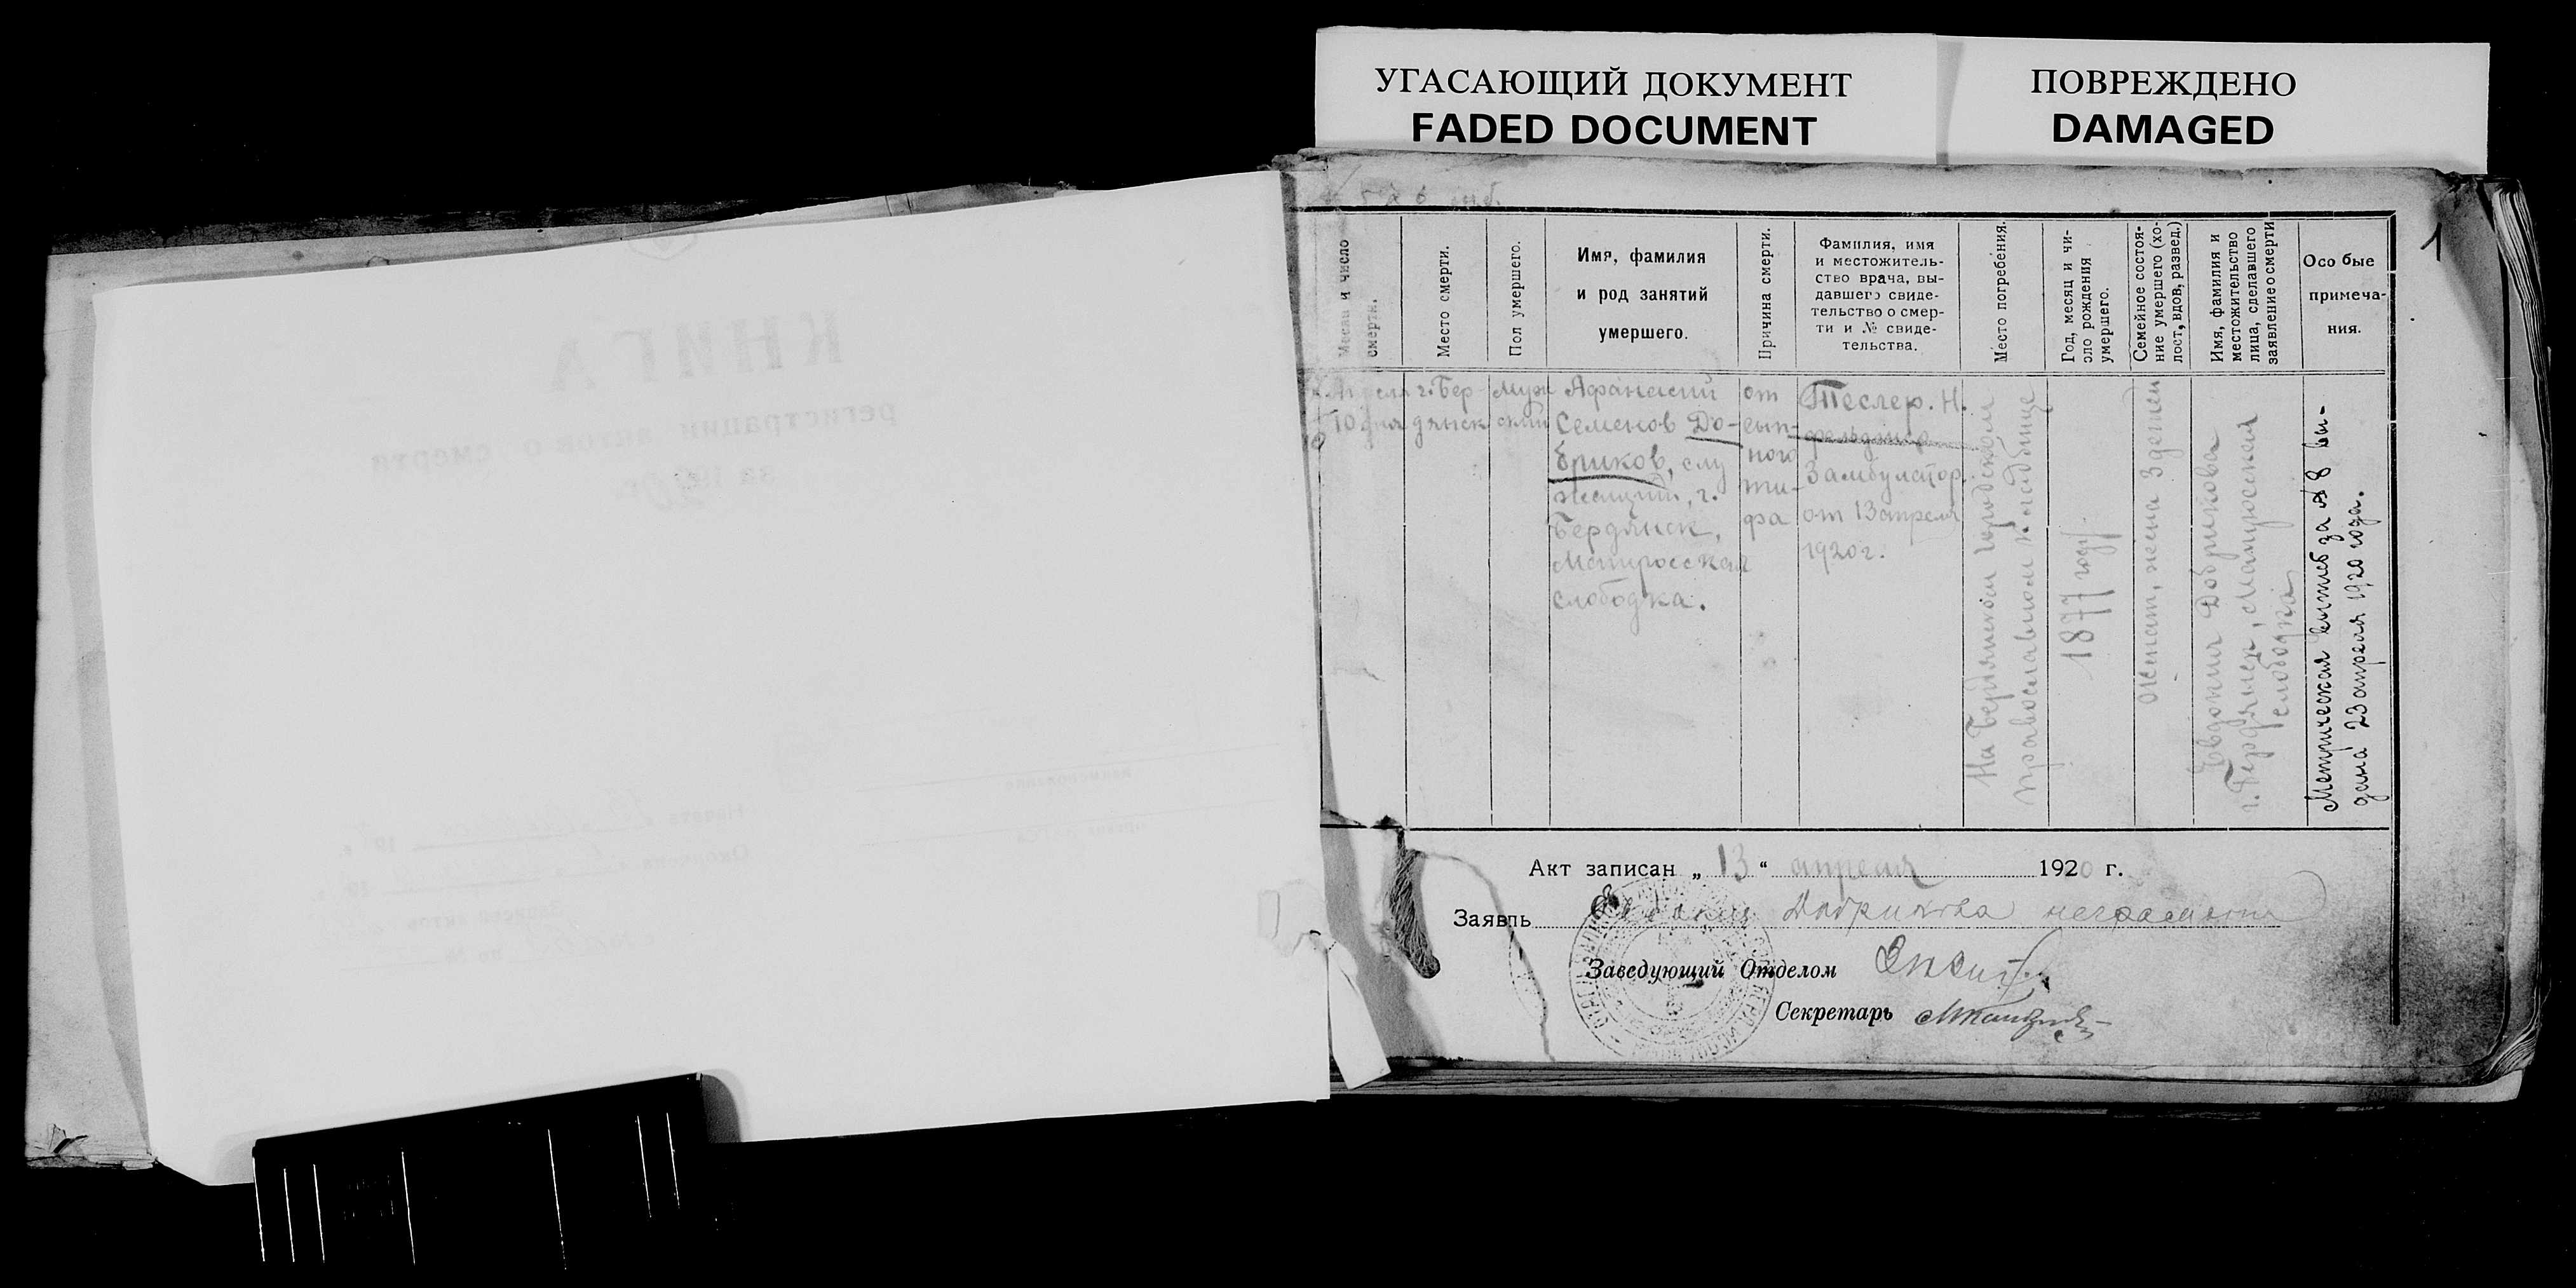 УГАСАЮЩИЙ ДОКУМЕНТ
FADED DOCUMENT
ПОВРЕЖДЕНО
DAMAGED
1
Месяц и число
смерти.
Место смерти.
Пол умершего.
Имя, фамилия
и род занятий
умершего.
Причина смерти.
Фамилия, имя
и местожитель-
ство врача, вы-
давшего свиде-
тельство о смер-
ти и № свиде-
тельства.
Место погребения.
Год, месяц и чи-
сло рождения
умершего.
Семейное состоя-
ние умершего (хо-
лост, вдов, развед.)
Имя, фамилия и
местожительство
лица, сделавшего
заявление о смерти
Особые
примеча-
ния.
Апреля
10 дня
г. Бер-
дянск
муж
ской
Афанасий
Семенов До-
бриков, слу
жащий, г.
Бердянск,
Матросская
слободка.
от
сып-
ного
ти-
фа
Теслер. Н.
Замбулатор.
от 13 апреля
1920 г.
На Бердянском городском
православном кладбище
1877 году
женат, жена 3 детей
Евдокия Добрикова
г. Бердянск, Матросская
слободка
Метрическая выпись за № 8 вы-
дана 23 апреля 1920 года.
Акт записан „ 13 “ апреля 1920 г.
Заявль Евдокия Добрикова неграмотна
Заведующий Отделом
Секретарь
КНИГА
регистрации актов о смерти
за 1920 г.
Начата
19
Окончена
19
по №